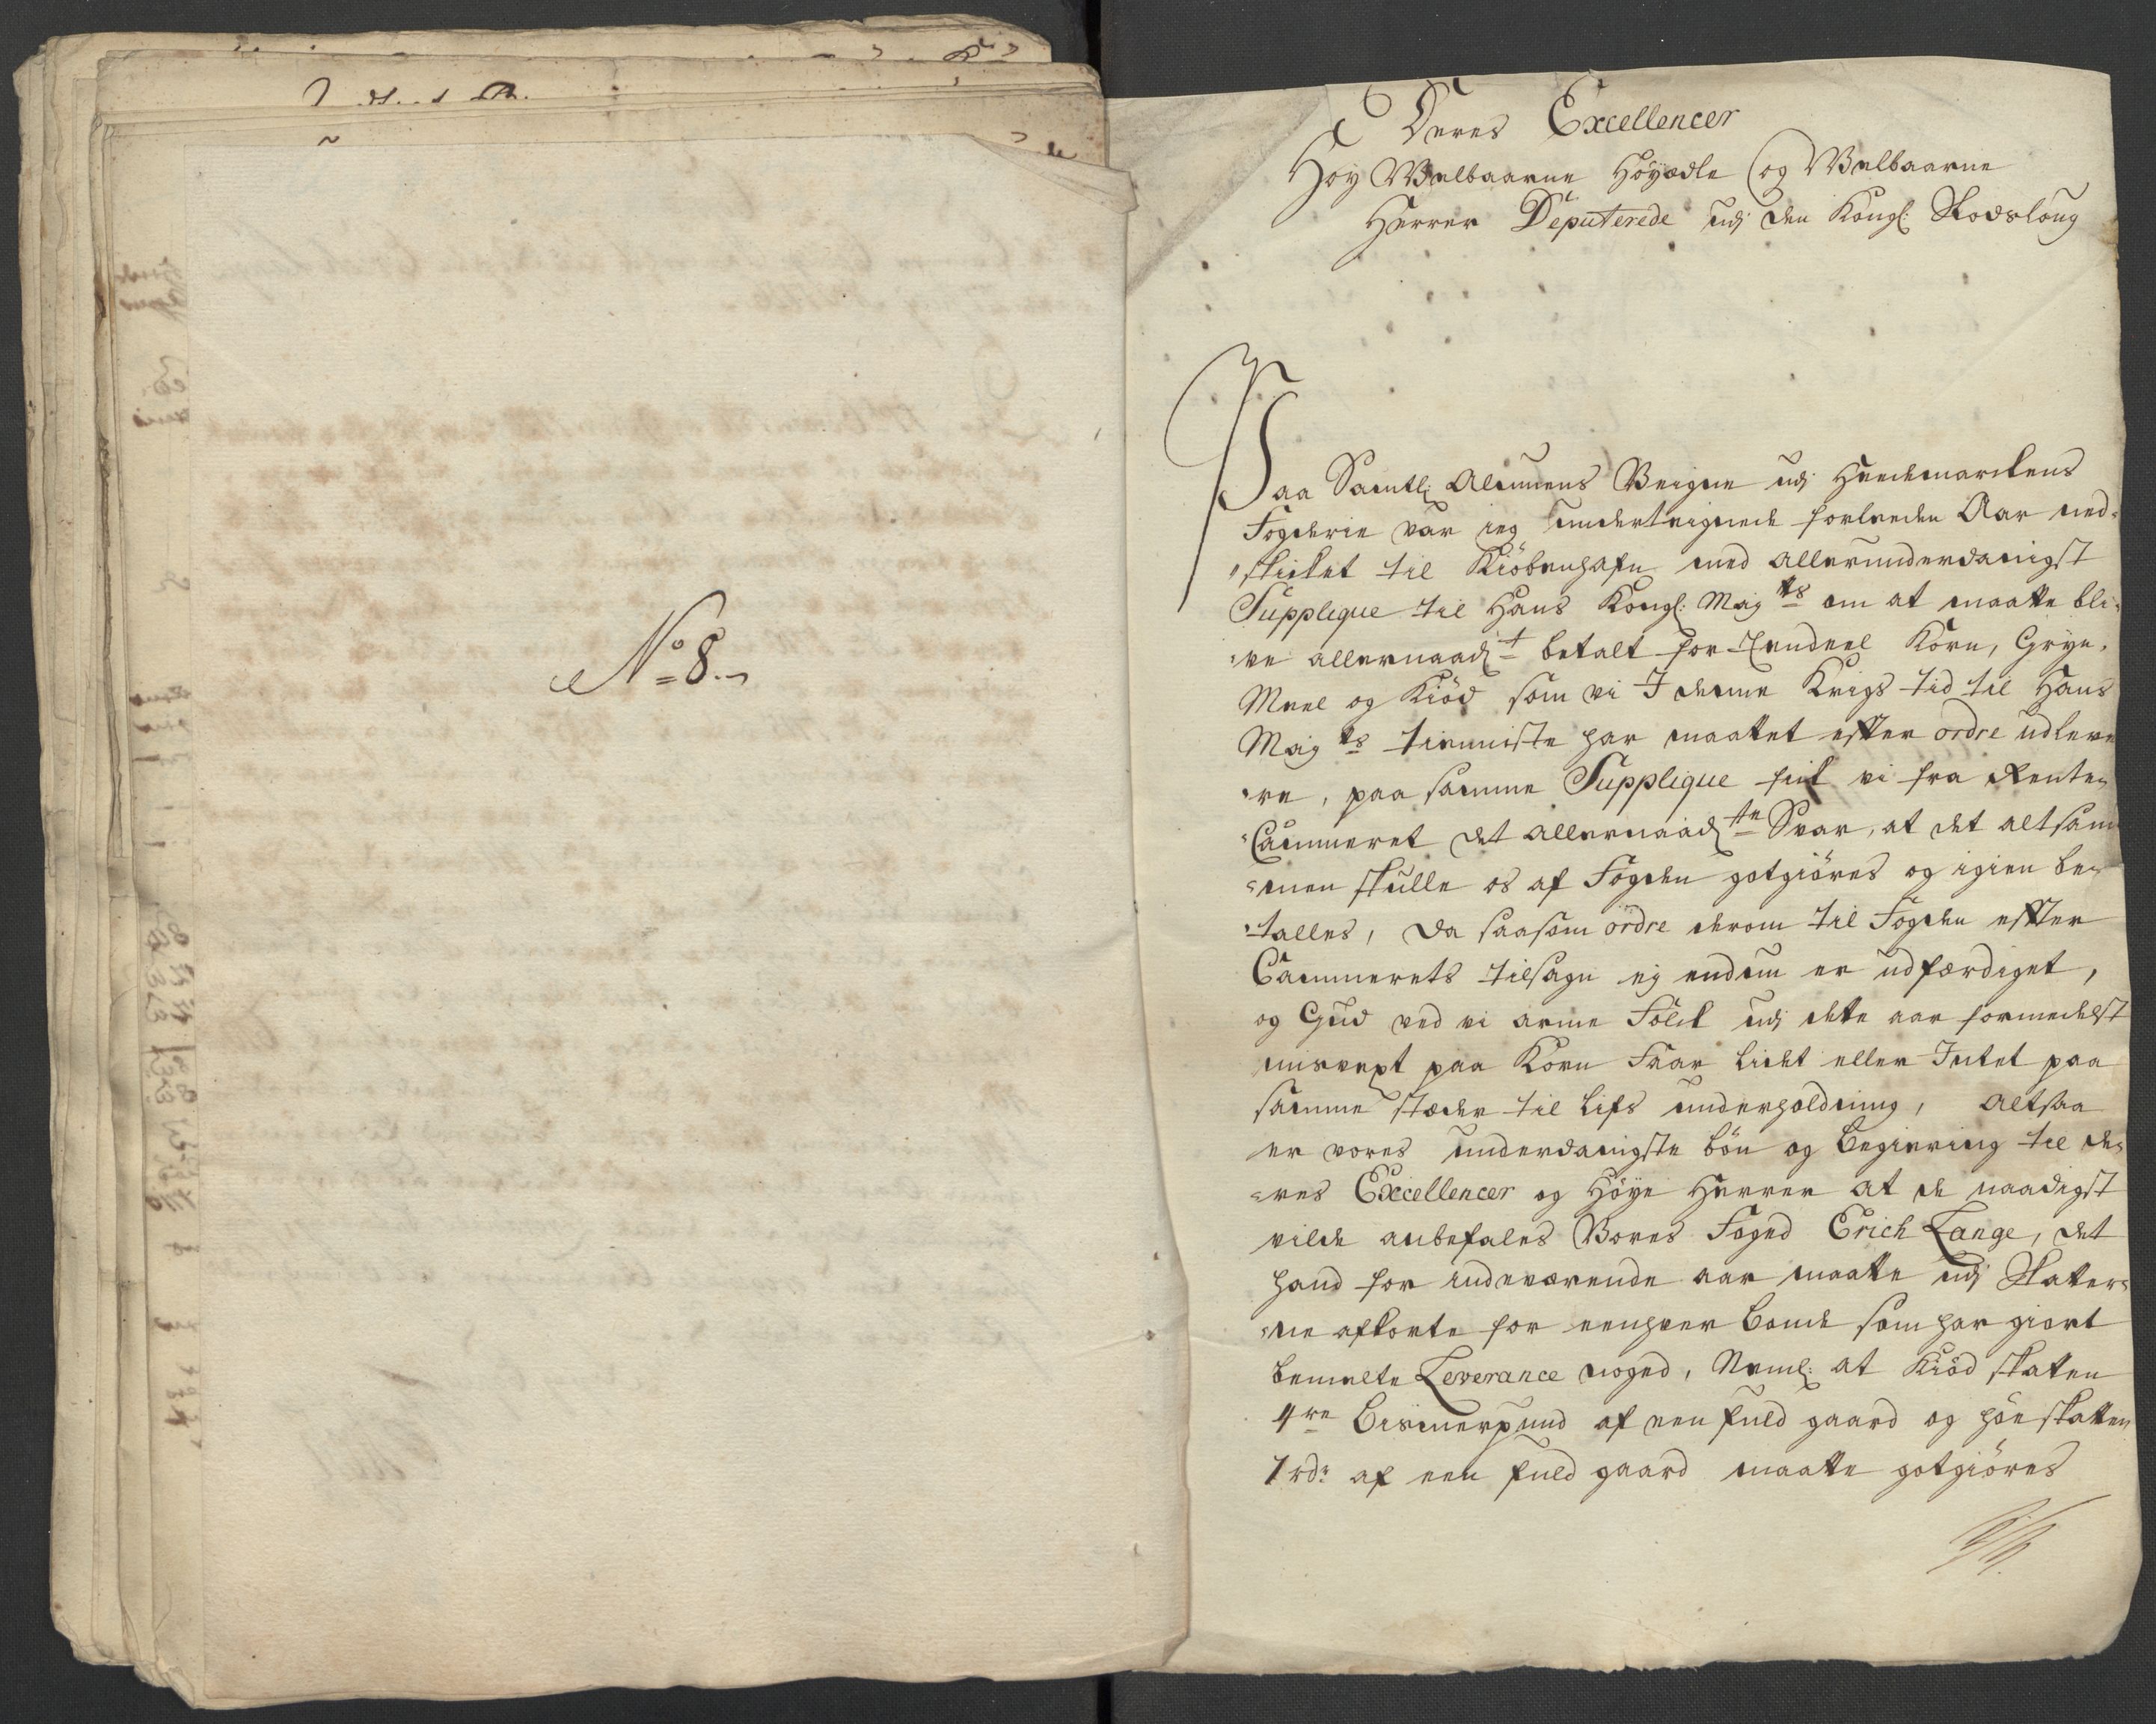 No 8.
Deres Excellencer
Høy Welbaarne Høyædle og Welbaarne
Herrer Deputerede udj den Kongl: Slodsloug
Paa Samtl: Almuens Veigne udj Heedemarckens
Fogderie var ieg underteignede forleeden Aar ned-
skicket til Kiöbenhafn med allerunderdanigst
Supplique til Hans Kongl: May ts om at maatte bli-
ve allernaad:t betalt for Eendeel Korn, Gryn,
Meel og Kiöd som vi I denne Krigs tid til Hans
May ts tienniste har maattet efter ordre udleve
re, paa samme Supplique fick vi fra Rente-
Cammeret det allernaad:ste Svar, at det altsam
men skulle os af Fogden gotgiöres og igien be-
talles, da saasom ordre derom til Fogden effter
Cammerets tilsagn ej endnu er udfærdiget,
og Gud ved vi arme Folck udj dette aar formedelst
misvext paa Korn Faar lidet eller Intet paa
samme stæder til lifs underholdning, altsaa
er vores underdanigste bön og begiering til de-
res Excellencer og Höye Herrer at de naadigst
vilde anbefales Vores Foged Erich Lange, det
hand for indeværende aar maatte udj Skatter-
ne afkorte for eenhver bonde som har giort
bemelte Leverance noged, Neml: at Kiöd skatten
4re Bismerpund af een fuld gaard og höe skatten
1 rdr af een fuld gaard maatte gotgiöres